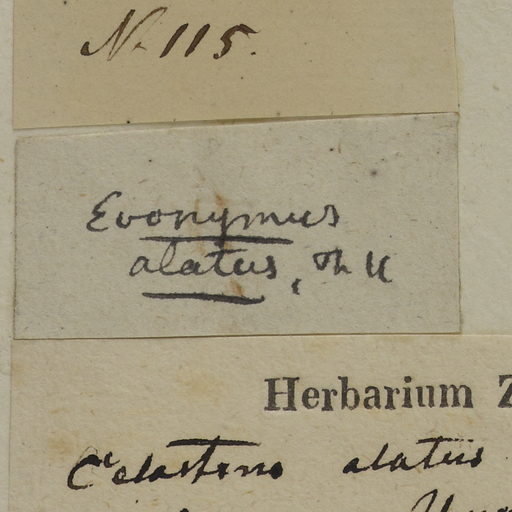 N. 115.
Evonymus
alatus, Th
Herbarium Z
Celastrus alatus